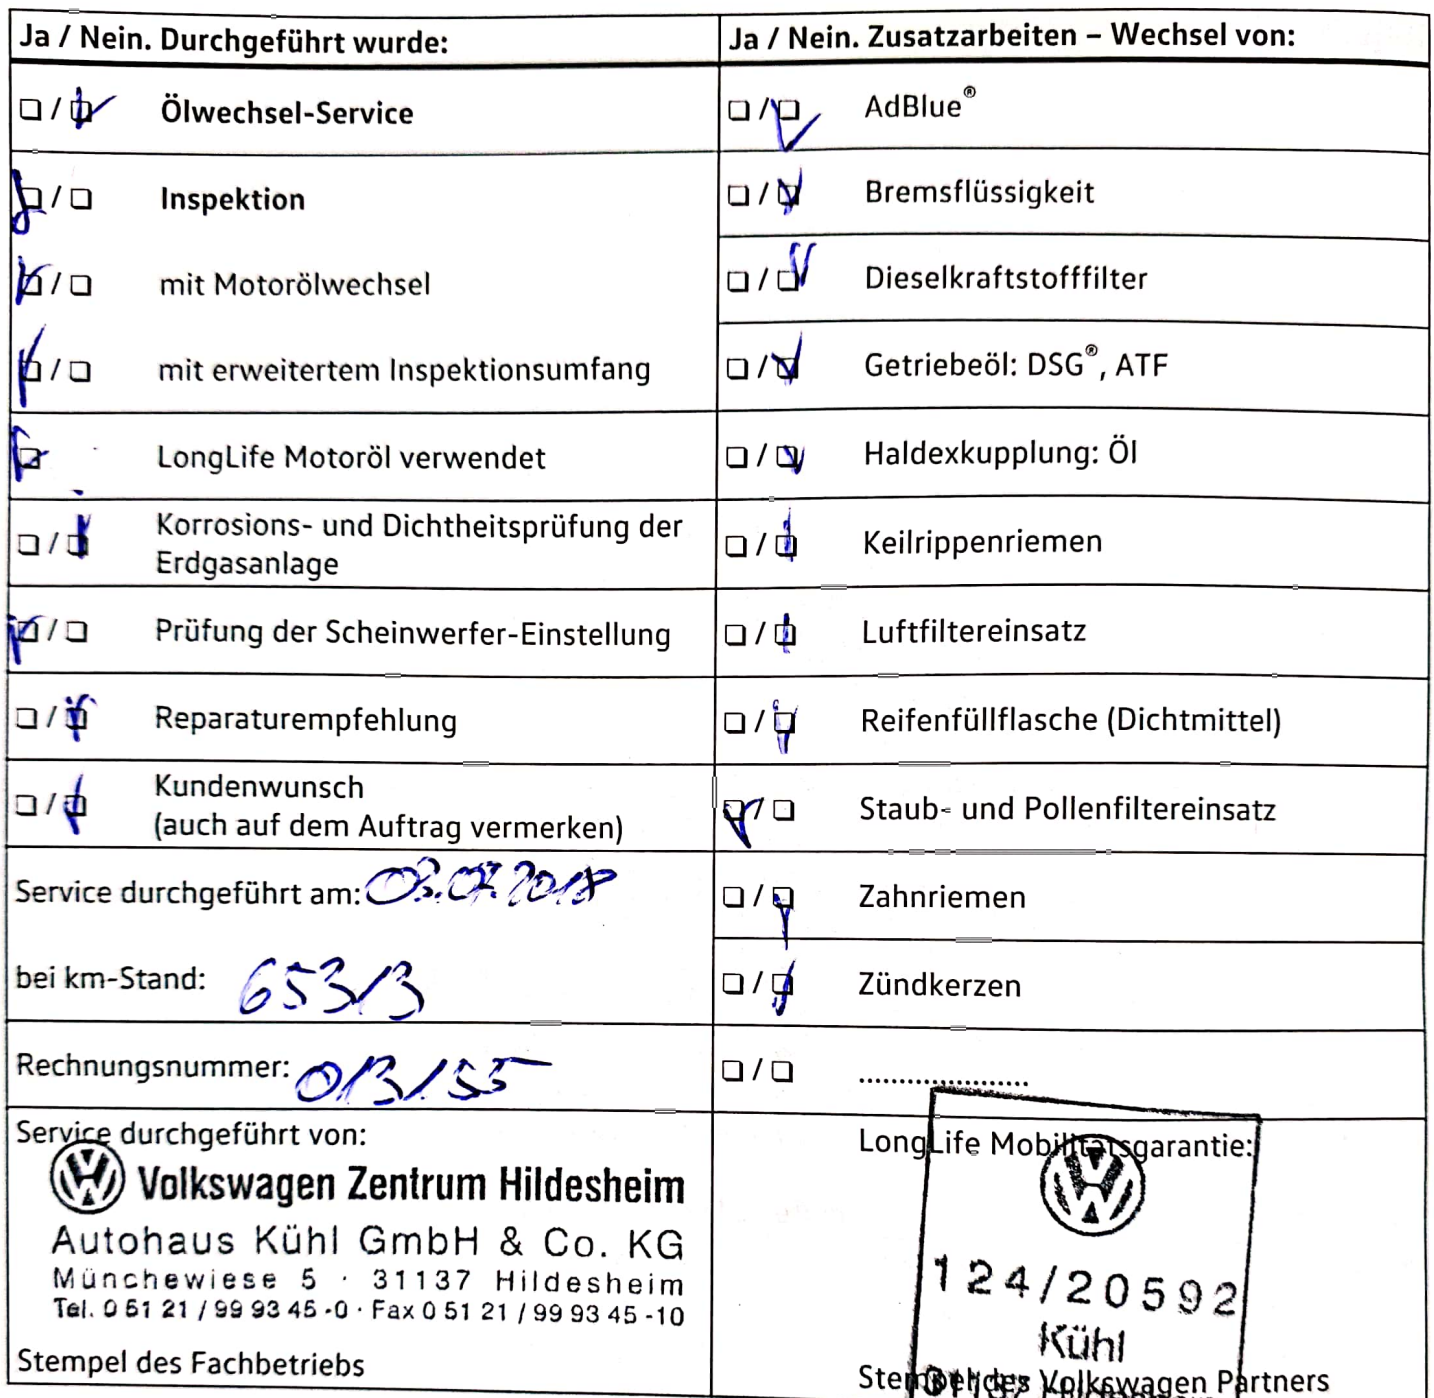 Ja / Nein. Durchgeführt wurde:
Ölwechsel-Service
Inspektion
mit Motorölwechsel
mit erweitertem Inspektionsumfang
LongLife Motoröl verwendet
Korrosions- und Dichtheitsprüfung der
Erdgasanlage
Prüfung der Scheinwerfer-Einstellung
Reparaturempfehlung
Kundenwunsch
(auch auf dem Auftrag vermerken)
Service durchgeführt am: 03.07.2018
bei km-Stand: 65313
Rechnungsnummer:
Service durchgeführt von:
Volkswagen Zentrum Hildesheim
Autohaus Kühl GmbH & Co. KG
Münchewiese 5 · 31137 Hildesheim
Tel. 0 51 21 / 99 93 45 -0 · Fax 0 51 21 / 99 93 45 -10
Stempel des Fachbetriebs
Ja / Nein. Zusatzarbeiten – Wechsel von:
AdBlue®
Bremsflüssigkeit
Dieselkraftstofffilter
Getriebeöl: DSG®, ATF
Haldexkupplung: Öl
Keilrippenriemen
Luftfiltereinsatz
Reifenfüllflasche (Dichtmittel)
Staub- und Pollenfiltereinsatz
Zahnriemen
Zündkerzen
.....................
LongLife Mobilitätsgarantie:
124/20592
Kühl
31137
Stempel des Volkswagen Partners